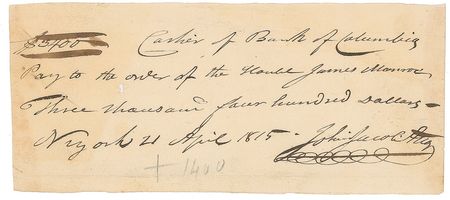 $3400 Cashier of Bank of Columbia
Pay to the order of the Honble James Monroe
Three thousand four hundred Dollars
N York 21 April 1815 - John Jacob Astor
+ 1400